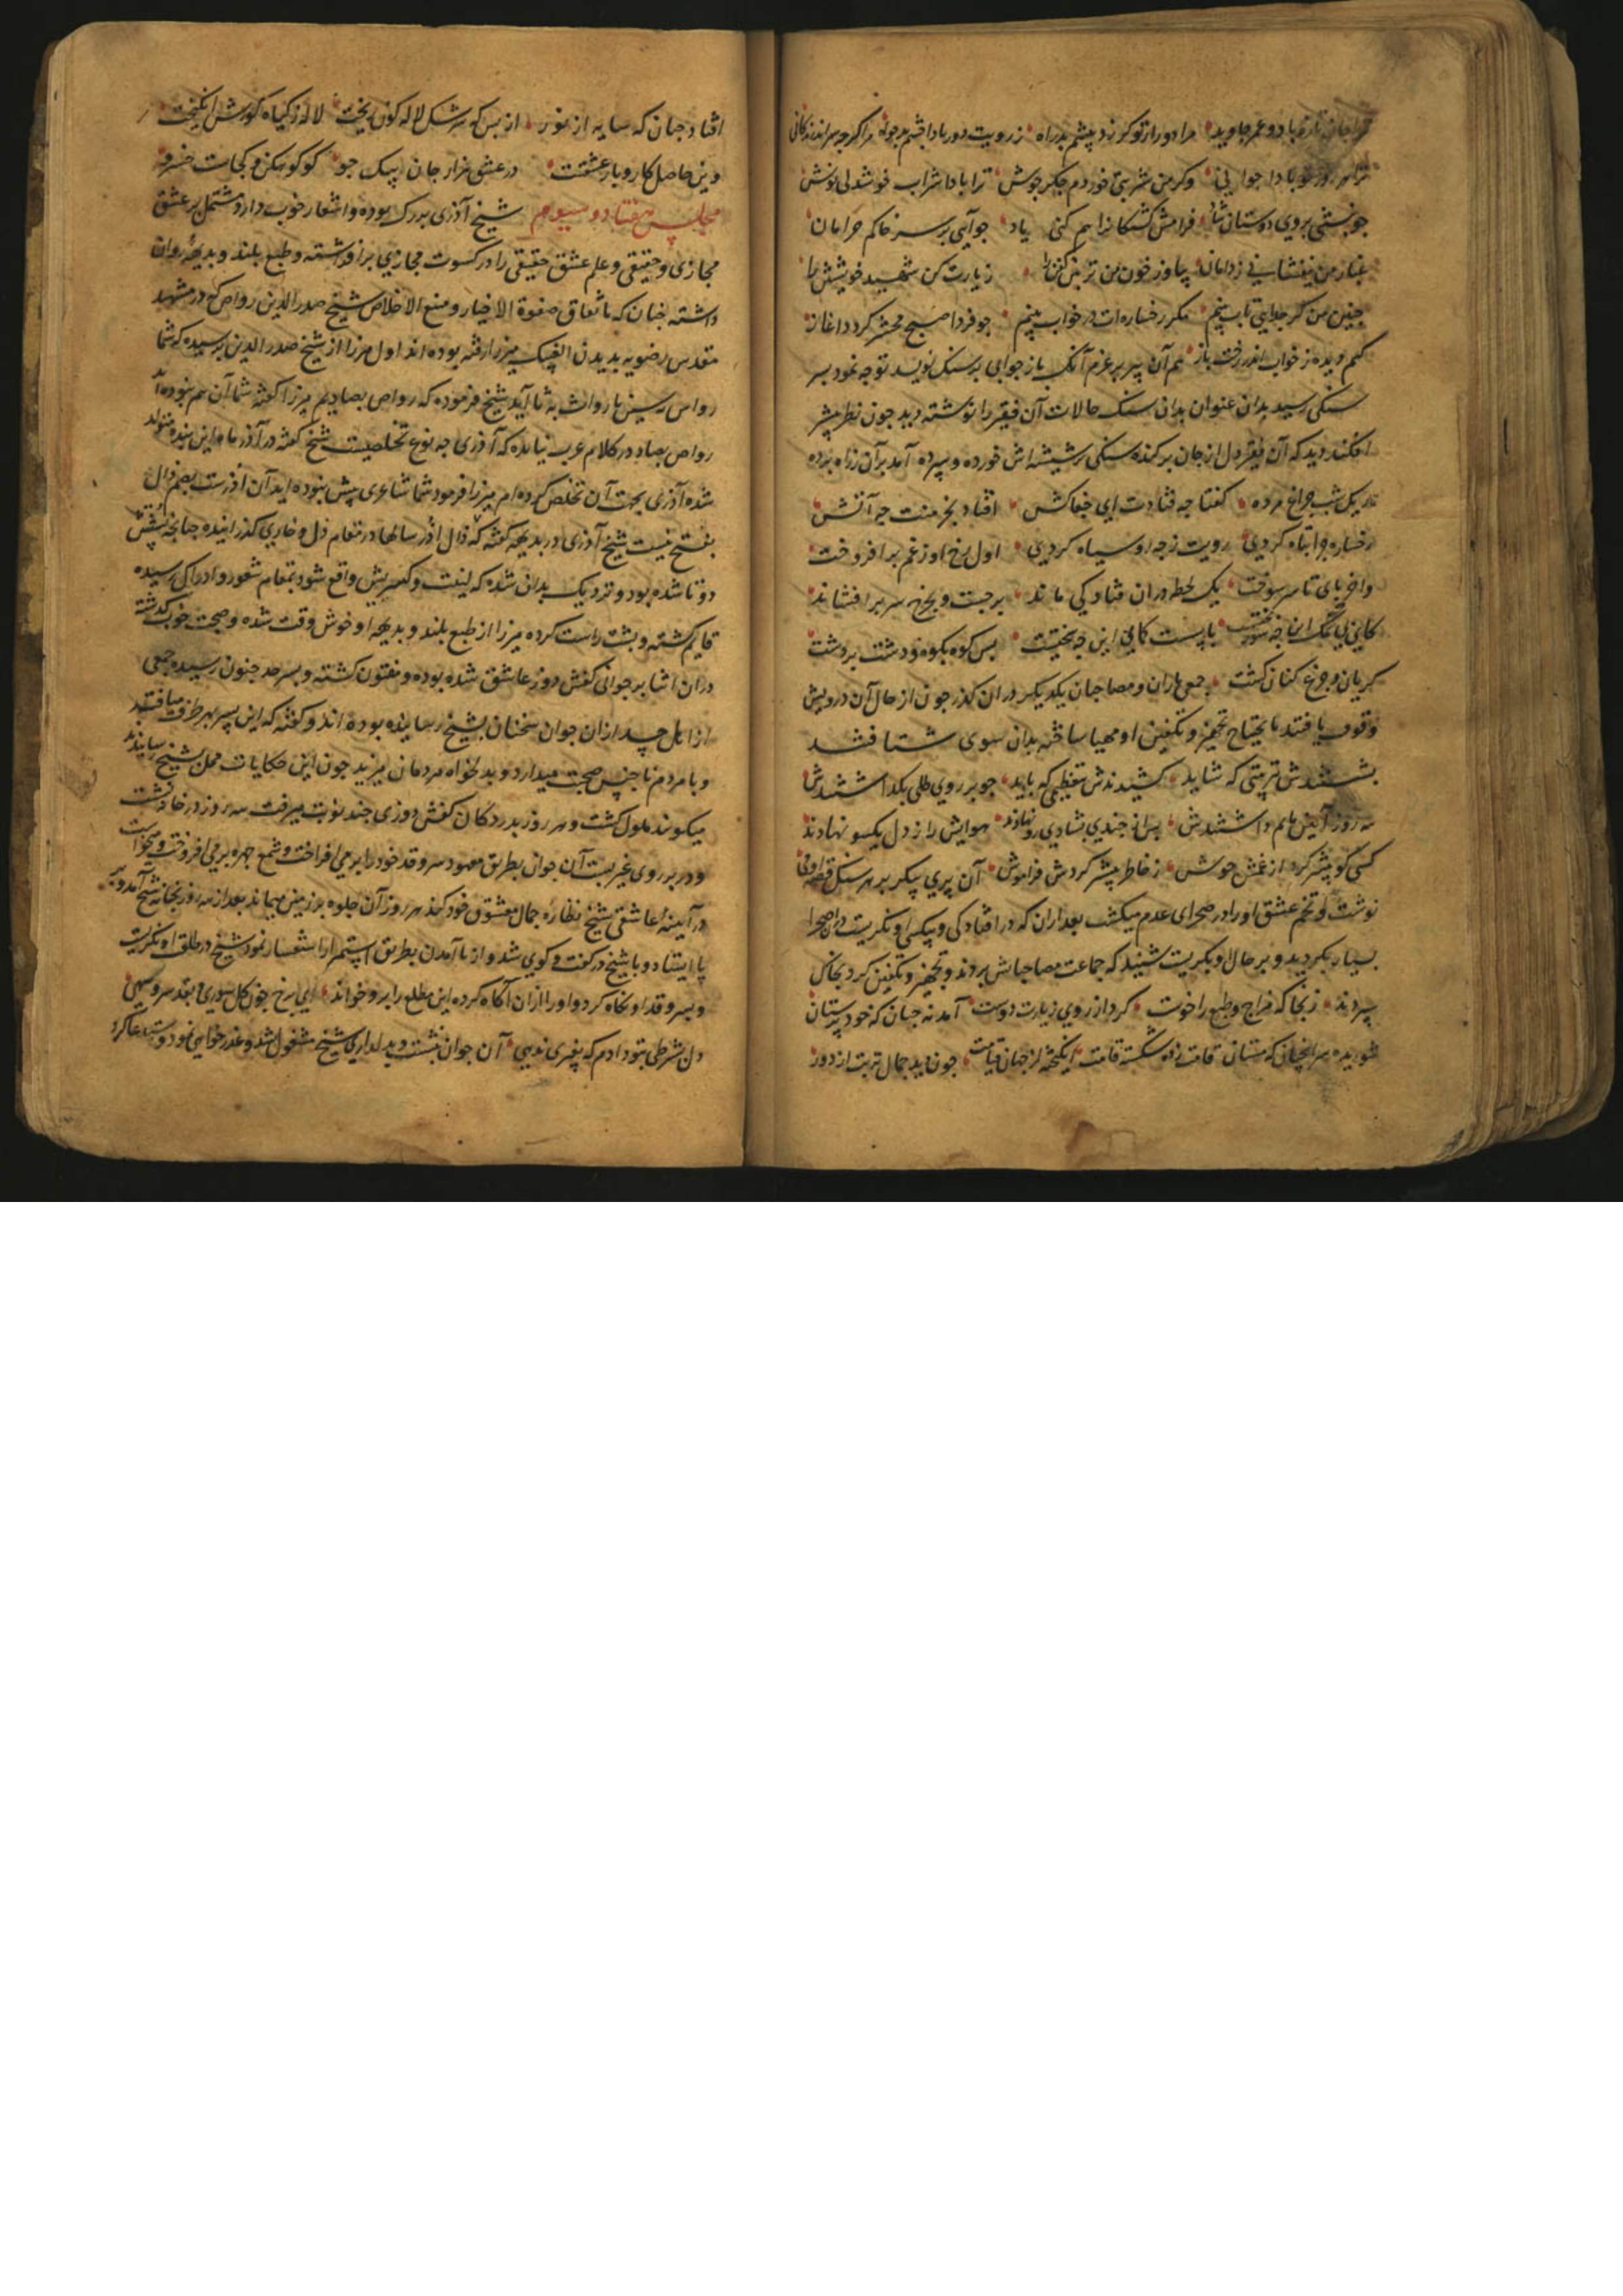 ترا جان تازه بادو عمر جاوید مرا دور از تو کر زد چشم بد راه ز رویت دور بادا چشم بدخواه مرا کرچه سرآمد زندکانی
ترا هر روز نو بادا جوانی وکر من شربتی خوردم جکرجوش ترا بادا شراب خوشدلی نوش
چو بنشینی بروی دوستان شاد فرامش کشتکانرا هم کنی یاد چو آیی بر سر خاکم خرامان
غبار من بیفشانی ز دامان زیارت کن شهید خویشتن را
چنین من کز جدایی تاب بینم مکر رخساره‌ات در خواب بینم چو فردا صبح محشر کردد اغاز
کنم دیده ز خواب اندر رخت باز هم آن پیر بر عزم آنک باز جوابی بر سنک نویسد توجه نمود بسر
سنکی رسید بدان عنوان بدان سنک حالات آن فقیر را نوشته دید چون نظر پیشتر
افکند دید که آن فقیر دل از جان برکنده سنکی بر شیشه‌اش خورده و سپرده آمد بران زراه برده
تاریک شب چراغ مرده کفتا چه فتادت ای جفاکش افتاد بخرمنت چه آتش
رخساره چرا تباه کردی رویت ز چه رو سیاه کردی اول رخ او ز غم برافروخت
واخر پای تا سر سوخت یک لحظه دران فتادکی ماند برجست و بچهره سر برافشاند
یا پست کانی این چه بختیست بس کوه بکوه و دشت بر دشت
کریان و جزع کنان کشت جمعی یاران و مصاحبان یکدیکر دران کذر چون از حال آن درویش
وقوف یافتند ما یحتاج تجهیز و تکفین او مهیا ساخته بدان سوی شتافتند
بشستندش بترتیبی که شاید کشیدندش بتعظیمی که باید
سه روز آیین ماتم داشتندش پس از چندی بشادی رو نهادند هوایش را ز دل یکسو نهادند
کسی کو پیشتر کرد از غمش جوش ز خاطر بیشتر کردش فراموش آن پری پیکر بر هر سنک
نوشت و تخم عشق او را در صحرای عدم میکشت بعد ازان که در افتادکی و بیکسی او نکریست دران صحرا
بسیار بکردید و بر حال او بکریست شنید که جماعت مصاحبانش بردند و تجهیز و تکفین کرد بخاک
سپردند زنجا که مزاج و طبع را خوست کرد از روی زیارت دوست آمد نه چنان که خودپرستان
شوریده سر انچنان که مستان قامت زده شکسته قامت انکیخته از جهان قیامت چون دید جمال تربت از دور
افتاد چنان که سایه از نور از بس که سرشک لاله کون ریخت لاله ز کیاه کورش انکیخت
وین حاصل کار و بار عشقست در عشق هزار جان بیک جو کو کوهکن و کجاست خسرو
مجلس هفتاد و سیوم شیخ آذری بزرک بوده و اشعار خوب دارد مشتمل بر عشق
مجازی و حقیقی و علم عشق حقیقی را در کسوت مجازی برافراشته و طبع بلند و بدیهه روان
داشته چنان که باتفاق صفوة الاخیار و منبع الاخلاص شیخ صدر الدین رواص که در مشهد
مقدس رضویه بدیدن الغ بیک میرزا رفته بوده‌اند اول میرزا از شیخ صدر الدین پرسیده که شما
رواس بسین یا رواث به ثا آید شیخ فرموده که رواص بصادیم میرزا کفته شما آن هم نبوده‌اید
رواص بصاد در کلام عرب نیامده که آذری چه نوع تخلصیست شیخ کفته در آذر ماه این بنده متولد
شده آذری بجهت آن تخلص کرده‌ام میرزا فرمود شما شاعری پیش نبوده‌اید آن اذرست بضم ذال
بفتح نیست شیخ آذری در بدیهه کفته که ذال اذر سالها در مقام ذل و خاری کذرانیده چنانچه پشتش
دوتا شده بود و نزدیک بدان شده که واقع شود بمقام شعور و ادراکی رسیده
قایم کشته و پشت راست کرده میرزا از طبع بلند و بدیهه او خوش وقت شده و صحبت خوب کذشته
دران اثنا بر جوانی کفش دوز عاشق شده بوده و مفتون کشته و بسرحد جنون رسیده جمعی
از اهل حسد ازان جوان سخنان بشیخ رسانیده بوده‌اند و کفته که این پسر بهر طرف میافتد
و با مردم ناجنس صحبت میدارد و بدلخواه مردمان میزید چون این حکایات ممل بشیخ رسانیدند
میکویند ملول کشت و هر روز بدر دکان کفش دوزی چند نوبت میرفت سه روز در خانه نشست
و در بر روی غیر بست آن جوان بطریق معهود سرو قد خود را برمی افراخت و شمع چهره برمی افروخت و میخواست
در آیینهٔ عاشقی شیخ نظاره جمال معشوقی خود کند هر روز آن جلوه بر زمین میماند بعد از سه روز بخانه شیخ آمد و بر
پا ایستاد و با شیخ در کفت و کوی شد و از نا آمدن بطریق مستمر ازو استفسار نمود شیخ در طلعت او نکریست
و بسرو قد او نکاه کرد و او را ازان آکاه کرده این مطلع را برو خواند ای برخ چون کل سوری بقد سرو سهی
دل بشرطی بتو دادم که بغیری ندهی آن جوان بنشست و بدلداری شیخ مشغول شد و عذرخواهی نمود